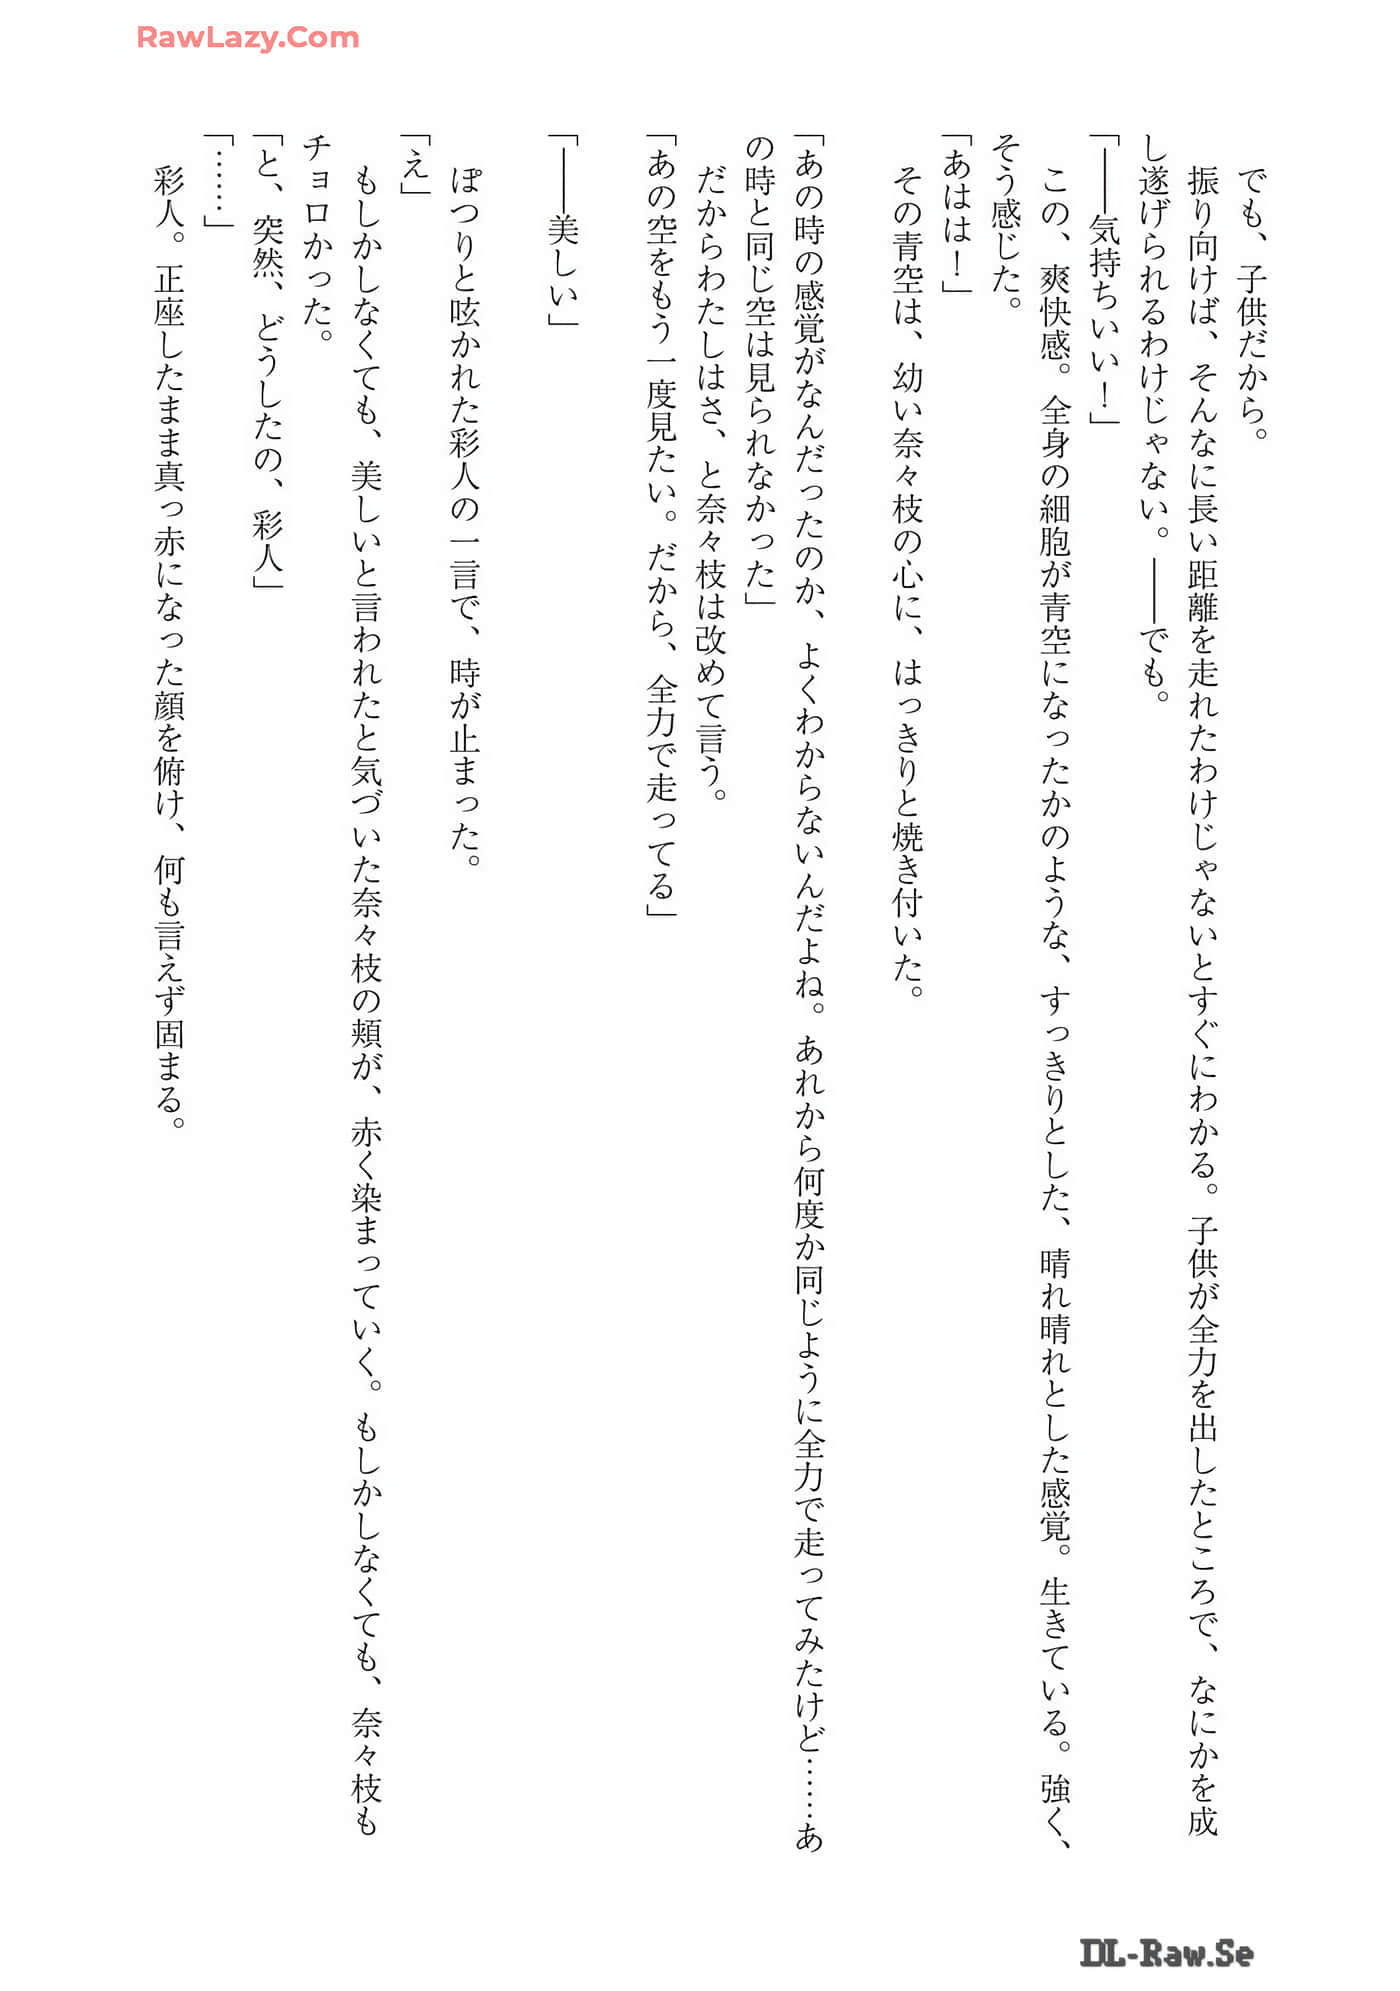 RawLazy.Com
でも、子供だから。
振り向けば、そんなに長い距離を走れたわけじゃないとすぐにわかる。子供が全力を出したところで、なにかを成
し遂げられるわけじゃない。――でも。
「――気持ちいい！」
この、爽快感。全身の細胞が青空になったかのような、すっきりとした、晴れ晴れとした感覚。生きている。強く、
そう感じた。
「あはは！」
その青空は、幼い奈々枝の心に、はっきりと焼き付いた。
「あの時の感覚がなんだったのか、よくわからないんだよね。あれから何度か同じように全力で走ってみたけど……あ
の時と同じ空は見られなかった」
だからわたしはさ、と奈々枝は改めて言う。
「あの空をもう一度見たい。だから、全力で走ってる」
「――美しい」
ぽつりと呟かれた彩人の一言で、時が止まった。
「え」
もしかしなくても、美しいと言われたと気づいた奈々枝の頬が、赤く染まっていく。もしかしなくても、奈々枝も
チョロかった。
「と、突然、どうしたの、彩人」
「……」
彩人。正座したまま真っ赤になった顔を俯け、何も言えず固まる。
DL-Raw.Se